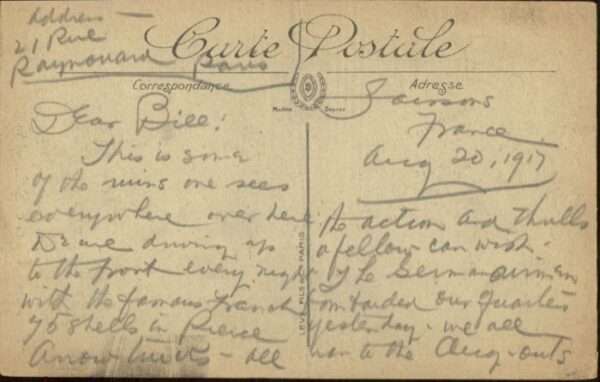 Address —
21 Rue
Raynouard Paris
Carte Postale
Correspondance
Adresse
Marque Déposée
Soissons
France
Aug 20, 1917
Dear Bill!
This is some
of the ruins one sees
everywhere over here
We are driving up
to the front every night
with the famous French
75 shells in Pierce
Arrow trucks - all
the action and thrills
a fellow can wish.
The German airmen
bombarded our quarters
yesterday - we all
ran to the dug-outs
PARIS